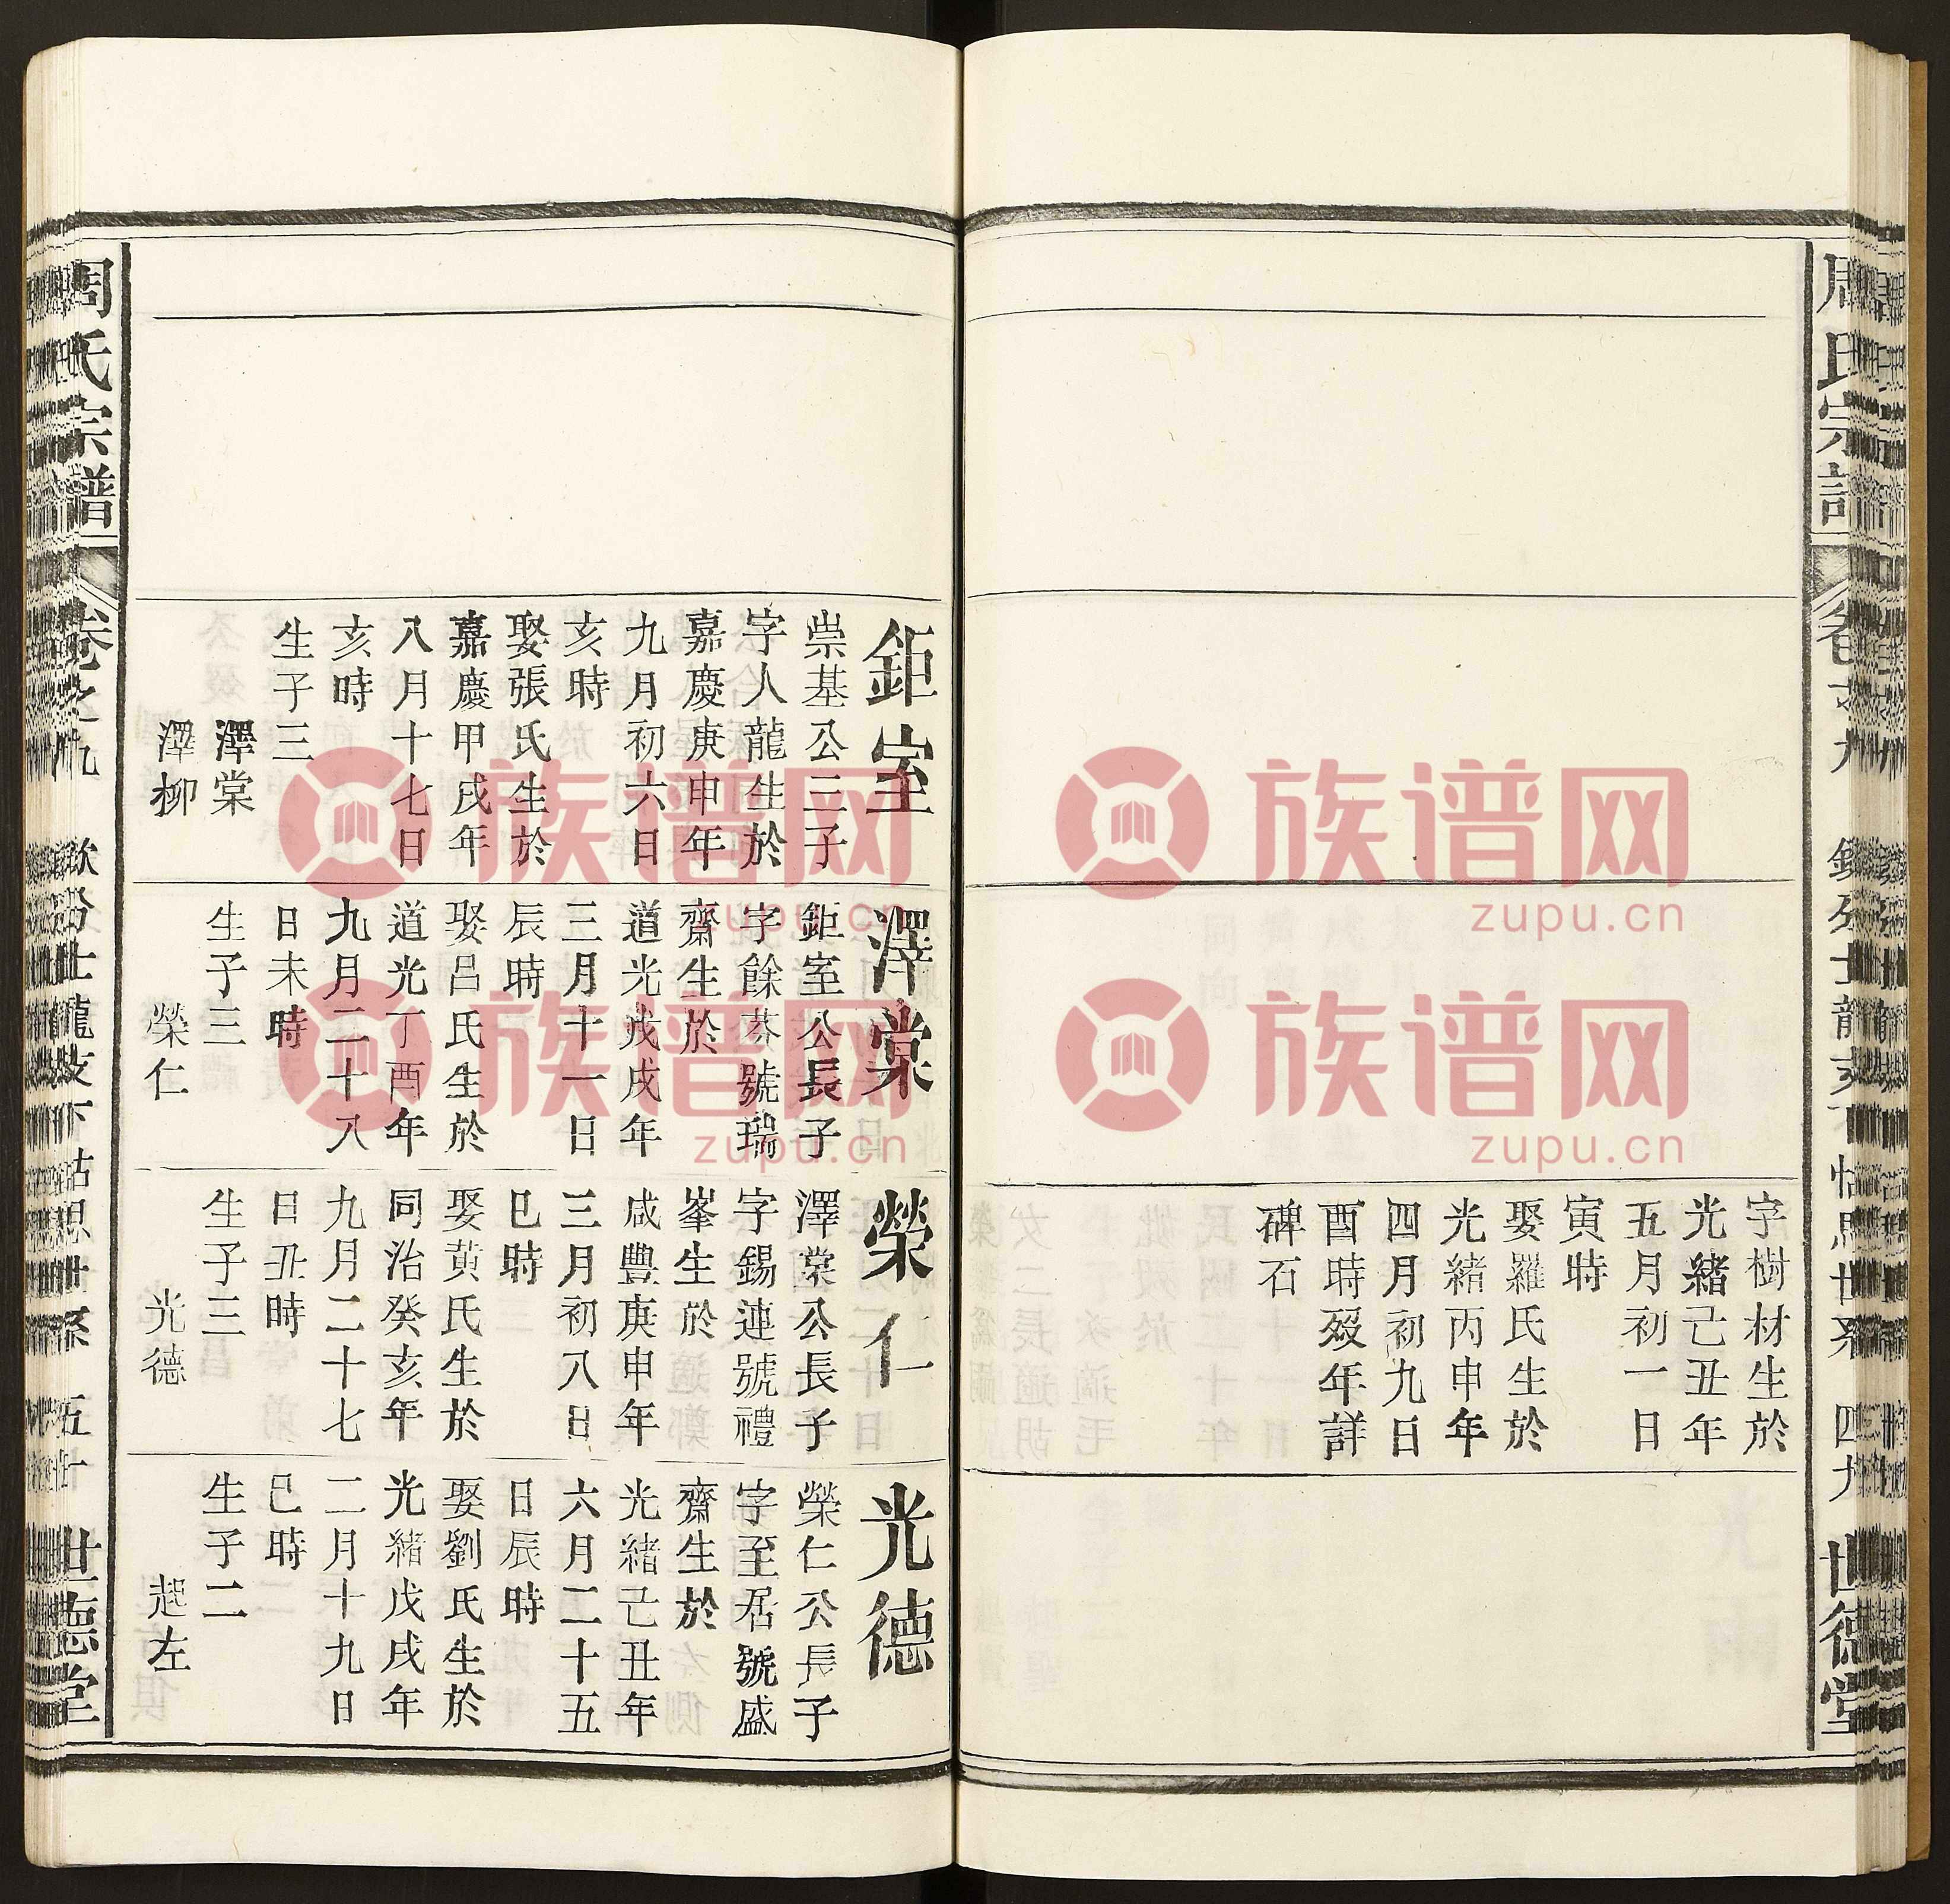 字樹材生於
光緒己丑年
五月初一日
寅時
娶羅氏生於
光緒丙申年
四月初九日
酉時歿年詳
碑石
四九
世德堂
鉅室
崇基公三子
字人龍生於
嘉慶庚申年
九月初六日
亥時
娶張氏生於
嘉慶甲戌年
八月十七日
亥時
生子三
澤棠
澤柳
澤棠
鉅室公長子
字餘芬號瑞
齋生於
道光戊戌年
三月十一日
辰時
娶呂氏生於
道光丁酉年
九月二十八
日未時
生子三
榮仁
榮仁
澤棠公長子
字錫連號禮
峯生於
咸豐庚申年
三月初八日
巳時
娶黃氏生於
同治癸亥年
九月二十七
日丑時
生子三
光德
光德
榮仁公長子
字至居號盛
齋生於
光緒己丑年
六月二十五
日辰時
娶劉氏生於
光緒戊戌年
二月十九日
巳時
生子二
起左
周氏宗譜
卷之九
五十
世德堂
族谱网
zupu.cn
族谱网
zupu.cn
族谱网
zupu.cn
族谱网
zupu.cn